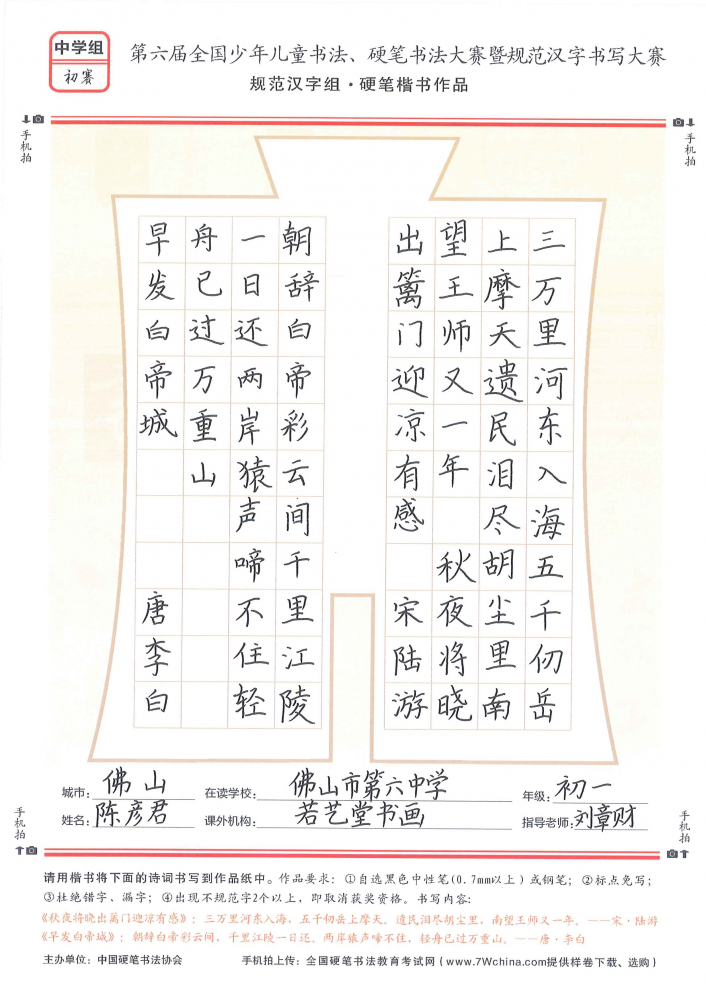 中学组
初赛
第六届全国少年儿童书法、硬笔书法大赛暨规范汉字书写大赛
规范汉字组·硬笔楷书作品
手机拍
手机拍
三万里河东入海五千仞岳
上摩天遗民泪尽胡尘里南
望王师又一年 秋夜将晓
出篱门迎凉有感 宋陆游
朝辞白帝彩云间千里江陵
一日还两岸猿声啼不住轻
舟已过万重山
早发白帝城 唐李白
城市：佛山 在读学校：佛山市第六中学 年级：初一
姓名：陈彦君 课外机构：若艺堂书画 指导老师：刘章财
手机拍
手机拍
请用楷书将下面的诗词书写到作品纸中。作品要求：①自选黑色中性笔(0.7mm以上)或钢笔；②标点免写；
③杜绝错字、漏字；④出现不规范字2个以上，即取消获奖资格。书写内容：
《秋夜将晓出篱门迎凉有感》：三万里河东入海，五千仞岳上摩天。遗民泪尽胡尘里，南望王师又一年。——宋·陆游
《早发白帝城》：朝辞白帝彩云间，千里江陵一日还。两岸猿声啼不住，轻舟已过万重山。——唐·李白
主办单位：中国硬笔书法协会 手机拍上传：全国硬笔书法教育考试网(www.7Wchina.com提供样卷下载、选购)